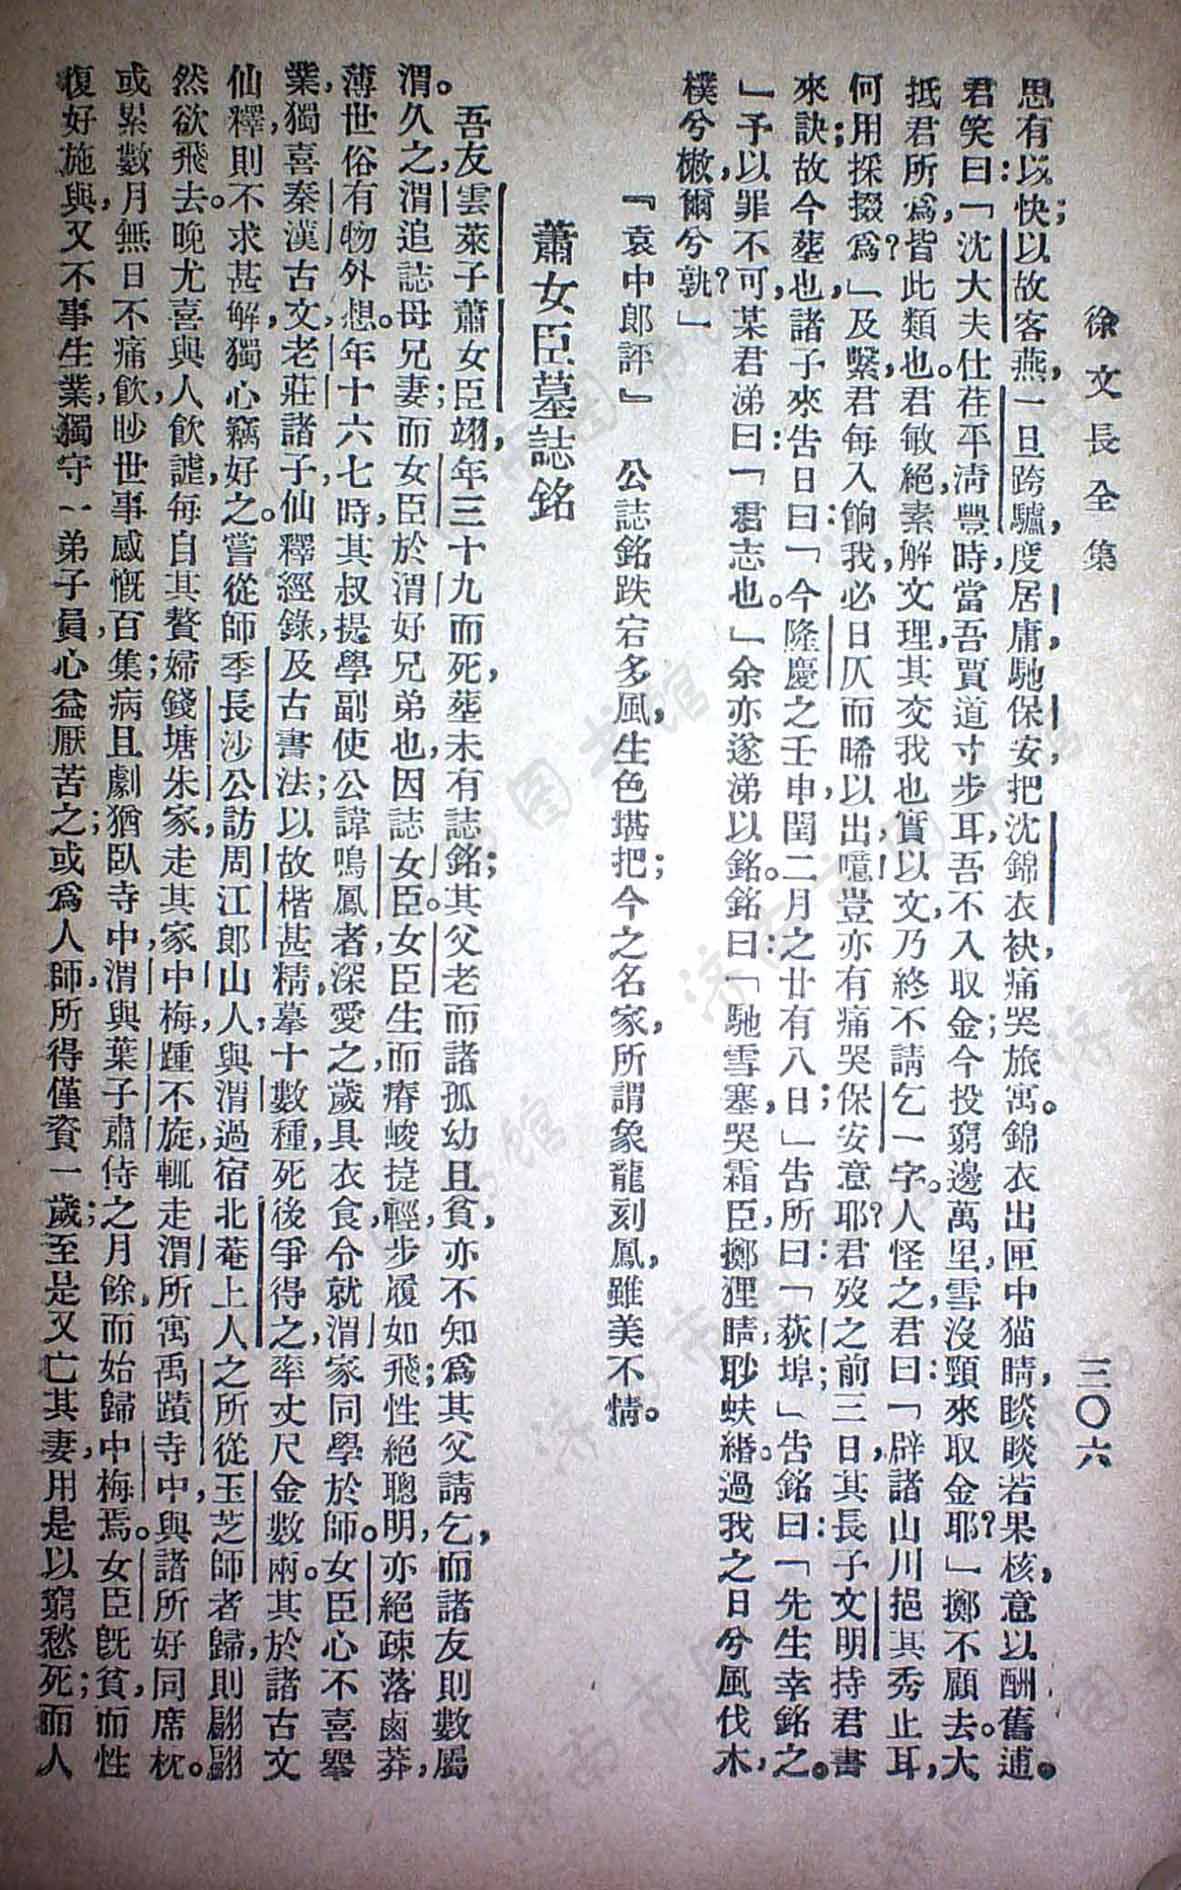 徐文長全集
三〇六
思有以快;以故客燕,一旦跨驢,度居庸,馳保安,把沈錦衣袂,痛哭旅寓。錦衣出匣中猫睛,睒睒若果核,意以酬舊逋。
君笑曰:「沈大夫仕茌平清豐時,當吾賈道寸步耳,吾不入取金;今投窮邊萬里,雪沒頸,來取金耶?」擲不顧去。大
抵君所爲,皆此類也。君敏絕,素解文理,其交我也,實以文,乃終不請乞一字。人怪之,君曰:「辟諸山川,挹其秀止耳,
何用採掇爲?」及繫,君每入餉我,必日仄而晞以出,噫!豈亦有痛哭保安意耶?君歿之前三日,其長子文明持君書
來訣;故今葬也,諸子來告日曰:「今隆慶之壬申,閏二月之廿有八日」;告所曰:「荻埠」;告銘曰:「先生幸銘之。
」予以罪不可,某君涕曰:「君志也。」余亦遂涕以銘。銘曰:「馳雪塞,哭霜臣,擲狸睛,耴蚨緡。過我之日兮風伐木,
樸兮橄,爾兮孰?」
『袁中郎評』 公誌銘跌宕多風,生色堪把;今之名家,所謂象龍刻鳳,雖美不情。
蕭女臣墓誌銘
吾友雲萊子蕭女臣翊,年三十九而死,葬未有誌銘;其父老而諸孤幼且貧,亦不知爲其父請乞,而諸友則數屬
渭。久之,渭追誌母兄妻;而女臣於渭好兄弟也,因誌女臣。女臣生而瘠峻,捷輕步履如飛;性絕聰明,亦絕疎落鹵莽,
薄世俗,有物外想。年十六七時,其叔提學副使公諱鳴鳳者深愛之,歲具衣食,令就渭家同學於師。女臣心不喜舉
業,獨喜秦漢古文,老莊諸子,仙釋經錄,及古書法;以故楷甚精,摹十數種,死後爭得之,率丈尺金數兩。其於諸古文
仙釋,則不求甚解,獨心竊好之。嘗從師季長沙公,訪周江郎山人,與渭過宿北菴上人之所,從玉芝師者歸,則翩翩
然欲飛去。晚尤喜與人飲謔,每自其贅婦錢塘朱家,走其家中梅,踵不旋,輒走渭所寓禹蹟寺中,與諸所好同席枕。
或累數月,無日不痛飲,眇世事,感慨百集;病且劇,猶臥寺中,渭與葉子肅侍之月餘,而始歸中梅焉。女臣旣貧,而性
復好施與,又不事生業,獨守一弟子員,心益厭苦之;或爲人師,所得僅資一歲;至是又亡其妻,用是以窮愁死;而人